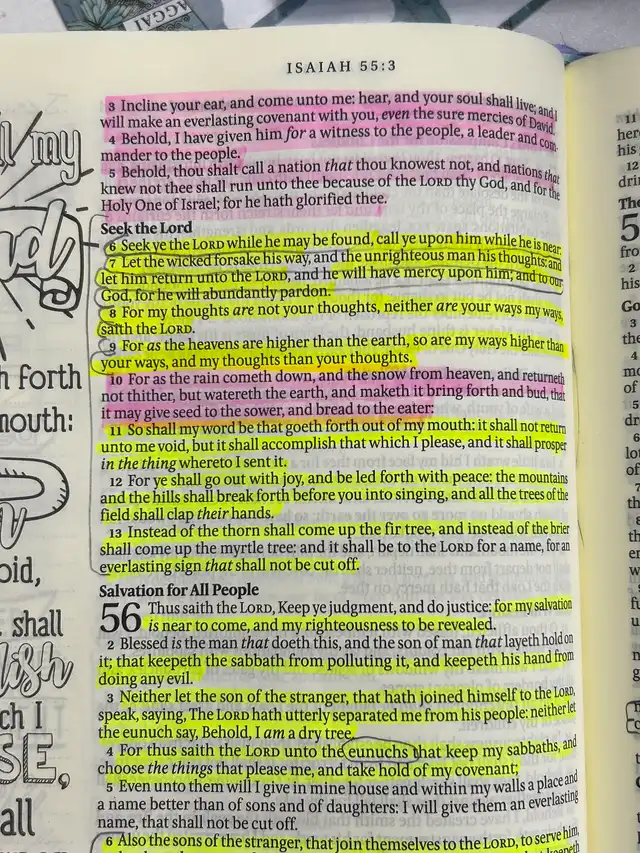 HAGGAI
ISAIAH 55:3
3 Incline your ear, and come unto me: hear, and your soul shall live; and I
will make an everlasting covenant with you, even the sure mercies of David.
4 Behold, I have given him for a witness to the people, a leader and com-
mander to the people.
5 Behold, thou shalt call a nation that thou knowest not, and nations that
knew not thee shall run unto thee because of the LORD thy God, and for the
Holy One of Israel; for he hath glorified thee.
Seek the Lord
6 Seek ye the LORD while he may be found, call ye upon him while he is near:
7 Let the wicked forsake his way, and the unrighteous man his thoughts: and
let him return unto the LORD, and he will have mercy upon him; and to our
God, for he will abundantly pardon.
8 For my thoughts are not your thoughts, neither are your ways my ways,
saith the LORD.
9 For as the heavens are higher than the earth, so are my ways higher than
your ways, and my thoughts than your thoughts.
10 For as the rain cometh down, and the snow from heaven, and returneth
not thither, but watereth the earth, and maketh it bring forth and bud, that
it may give seed to the sower, and bread to the eater:
11 So shall my word be that goeth forth out of my mouth: it shall not return
unto me void, but it shall accomplish that which I please, and it shall prosper
in the thing whereto I sent it.
12 For ye shall go out with joy, and be led forth with peace: the mountains
and the hills shall break forth before you into singing, and all the trees of the
field shall clap their hands.
13 Instead of the thorn shall come up the fir tree, and instead of the brier
shall come up the myrtle tree: and it shall be to the LORD for a name, for an
everlasting sign that shall not be cut off.
Salvation for All People
56 Thus saith the LORD, Keep ye judgment, and do justice: for my salvation
is near to come, and my righteousness to be revealed.
2 Blessed is the man that doeth this, and the son of man that layeth hold on
it; that keepeth the sabbath from polluting it, and keepeth his hand from
doing any evil.
3 Neither let the son of the stranger, that hath joined himself to the LORD,
speak, saying, The LORD hath utterly separated me from his people: neither let
the eunuch say, Behold, I am a dry tree.
4 For thus saith the LORD unto the eunuchs that keep my sabbaths, and
choose the things that please me, and take hold of my covenant;
5 Even unto them will I give in mine house and within my walls a place and
a name better than of sons and of daughters: I will give them an everlasting
name, that shall not be cut off.
6 Also the sons of the stranger, that join themselves to the LORD, to serve him,
my
forth
mouth:
oid,
shall
ch I
all